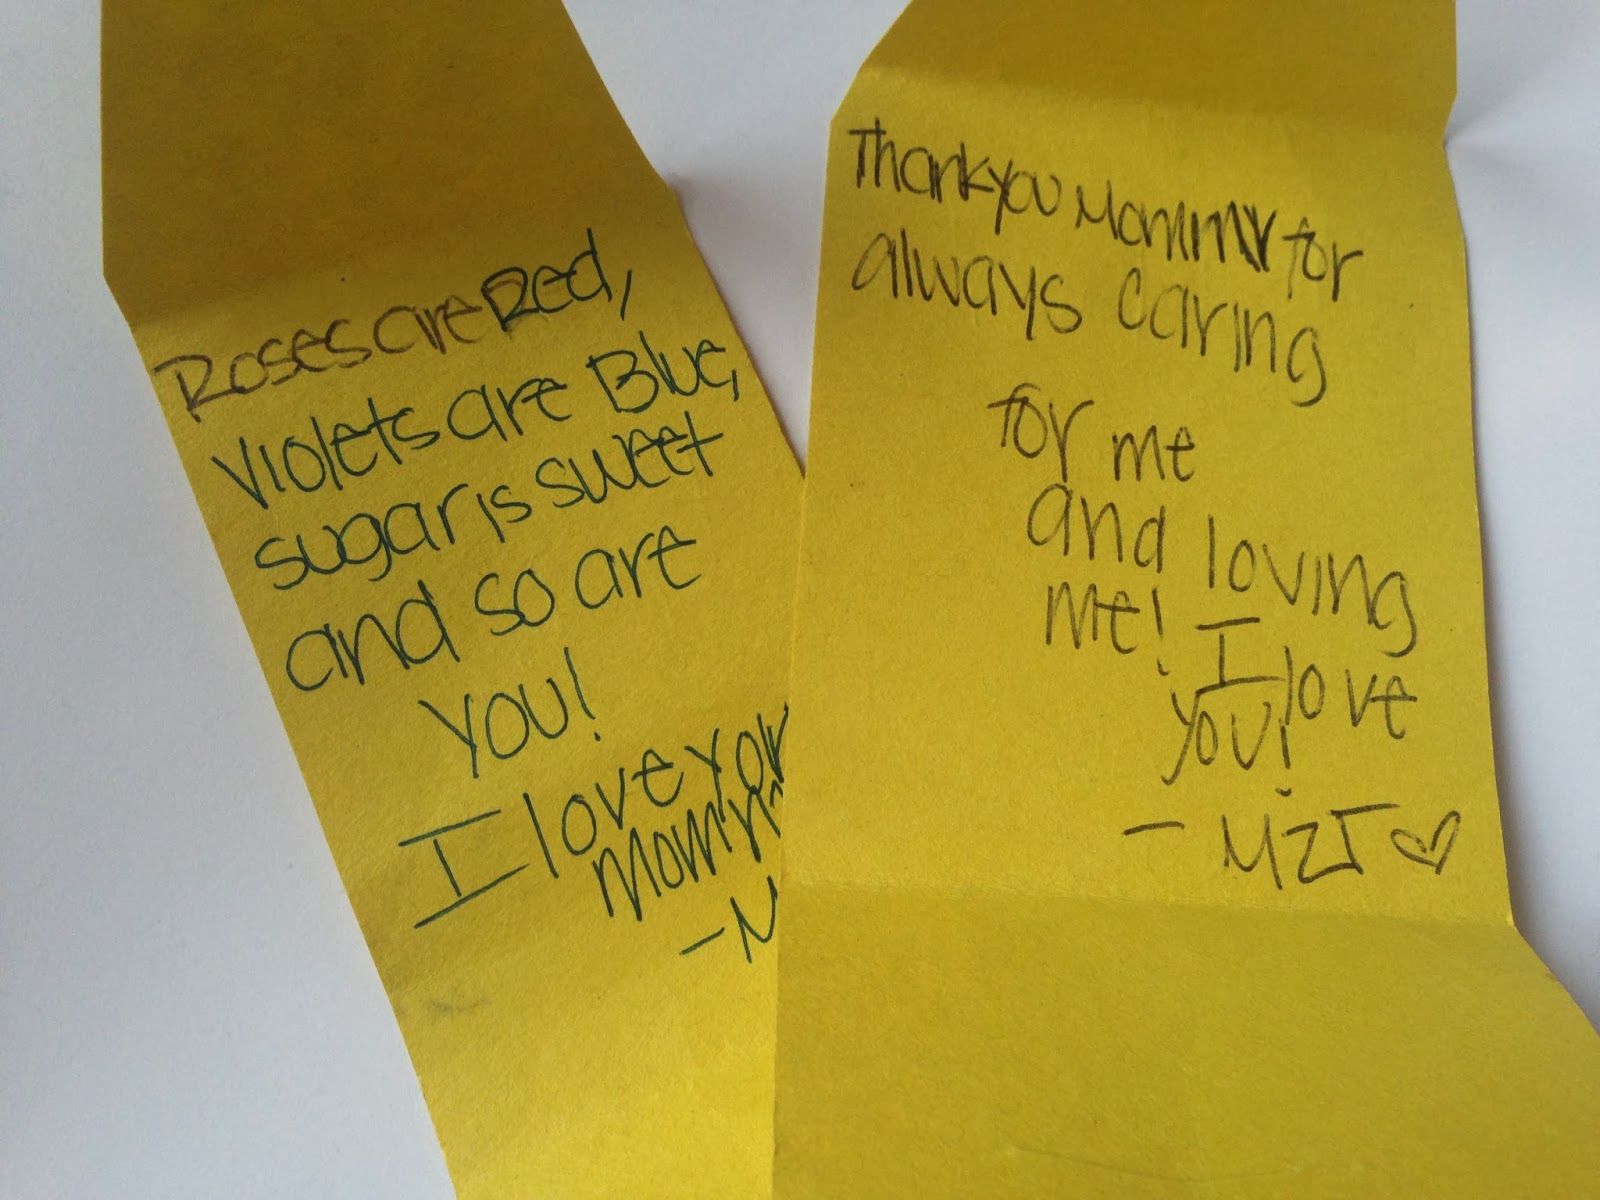 Roses are Red,
Violets are Blue,
sugar is sweet
and so are
you!
I love you
Thank you Mommy for
always caring
for me
and loving
me! I love
you!
- MZT